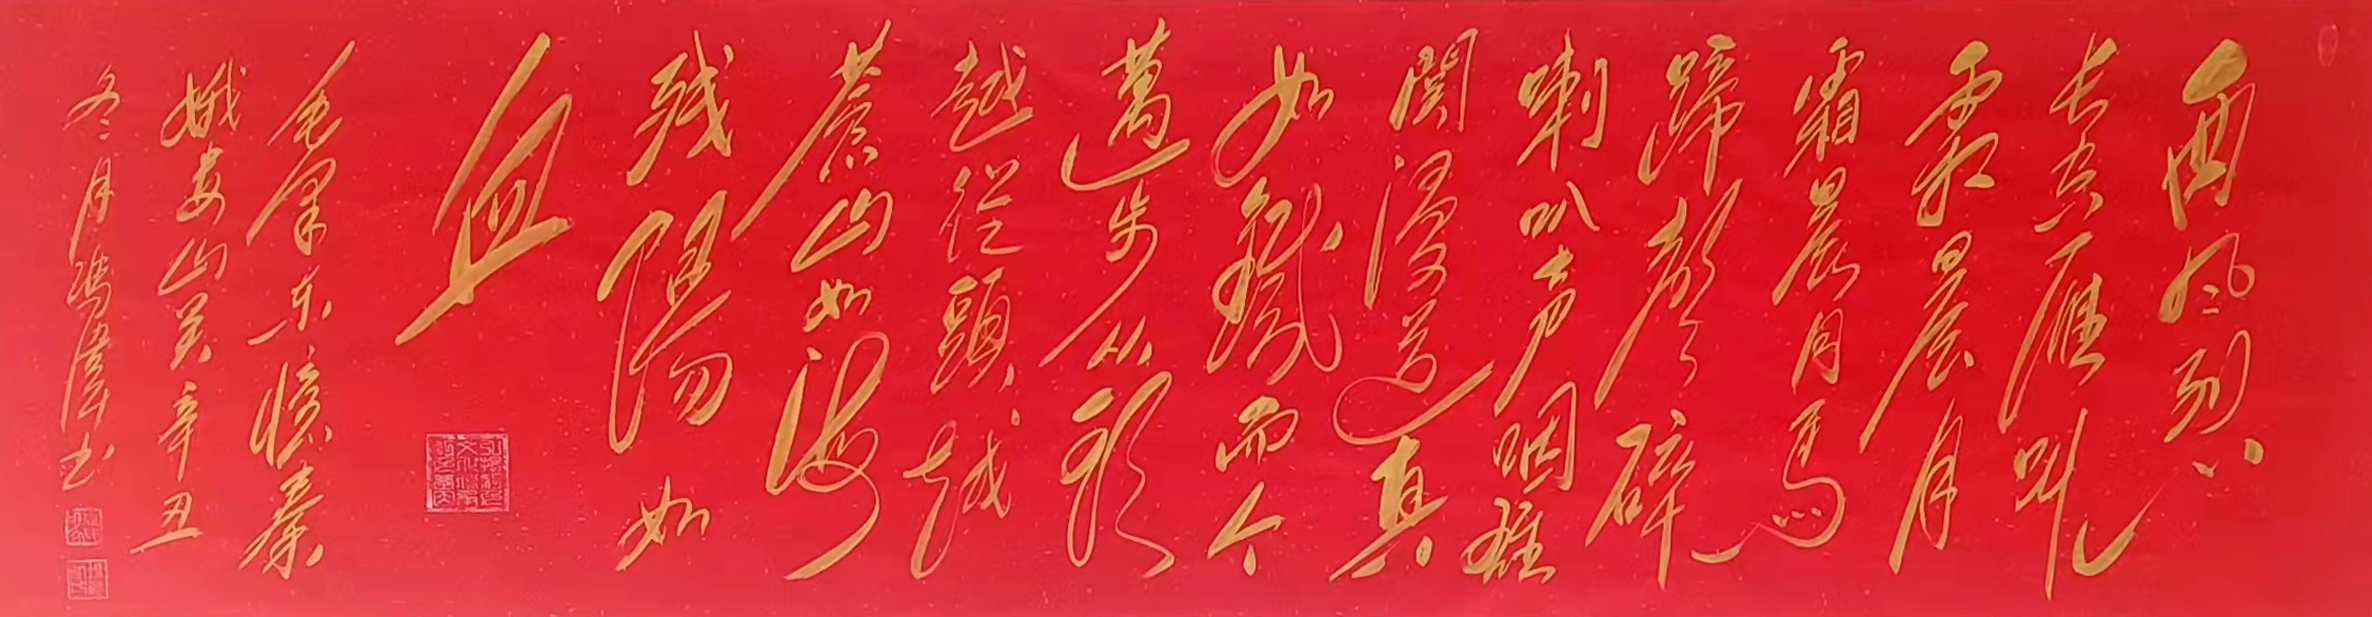 西风烈
长空雁叫
霜晨月
霜晨月马
蹄聲碎
喇叭声咽雄
関漫道真
如鐵而今
邁步从頭
越從頭越
蒼山如海
残陽如
血
毛泽东憶秦
娥娄山关辛丑
冬月馮偉书